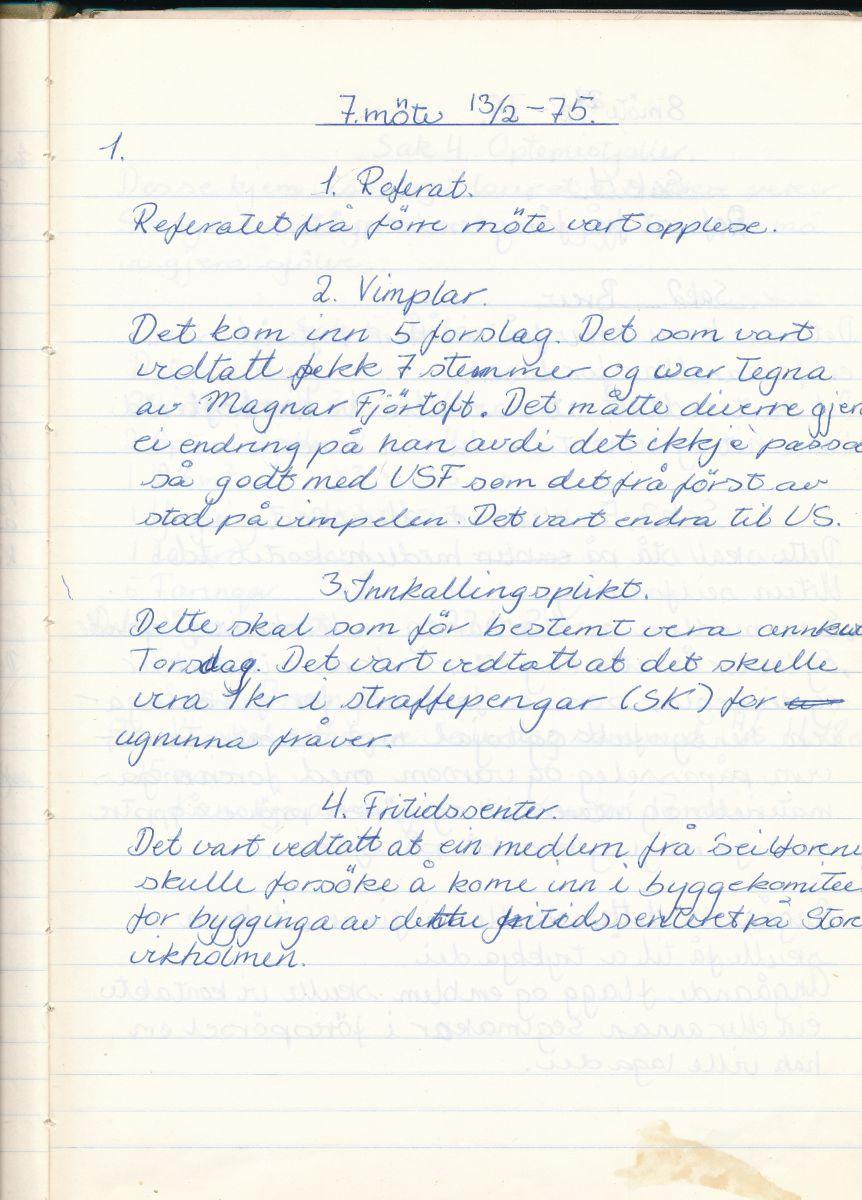 7. möte 13/2 - 75.
1.
1. Referat.
Referatet frå förre möte vart opplese.
2. Vimplar.
Det kom inn 5 forslag. Det som vart
vedtatt fekk 7 stemmer og war Tegna
av Magnar Fjörtoft. Det måtte diverre gjera
ei endring på han avdi det ikkje passa
så godt med USF som det frå först av
stod på vimpelen. Det vart endra til US.
3. Innkallingsplikt.
Dette skal som för bestemt vera annkvar
Torsdag. Det vart vedtatt at det skulle
vera 1 kr i straffepengar (SK) for
ugninna fråver.
4. Fritidssenter.
Det vart vedtatt at ein medlem frå Seilforenin
skulle forsöke å kome inn i byggekomiteen
for bygginga av dette fritidssenteret på Stor
vikholmen.